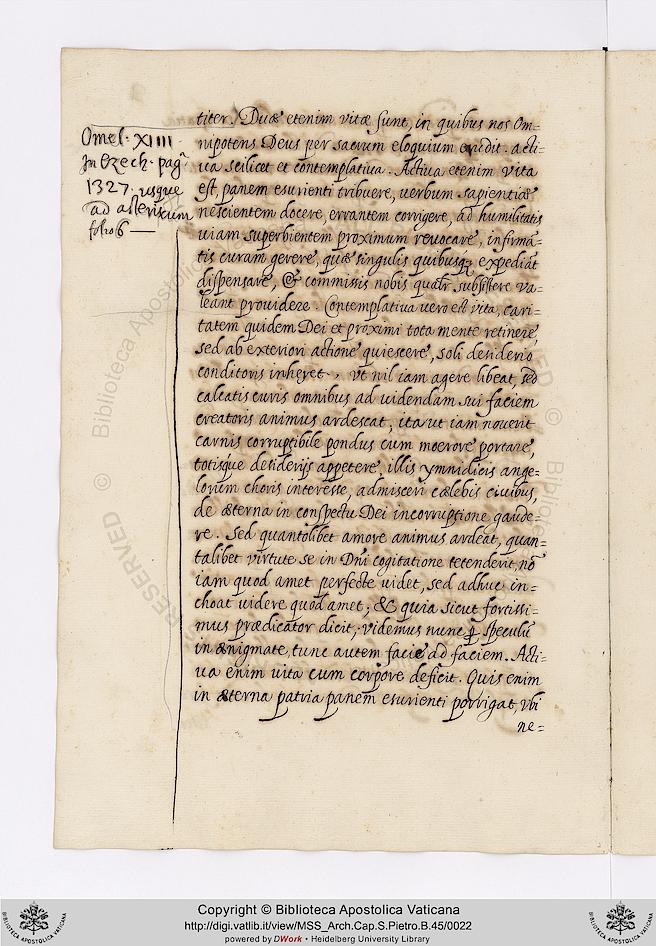 Omel. XIIII
In Ezech. pag.
1327. usque
ad asteriscum
folio 6 —
titer. Duæ etenim vitæ sunt, in quibus nos Om=
nipotens Deus per sacrum eloquium erudit. acti=
ua scilicet et contemplatiua. Actiua etenim vita
est, panem esurienti tribuere, verbum sapientiæ
nescientem docere, errantem corrigere, ad humilitatis
uiam superbientem proximum reuocare, infirmā=
tis curam gerere, quæ singulis quibusq; expediāt
dispensare, & commissis nobis qualr̄ subsistere va=
leant prouidere. Contemplatiua uero est vita, cari=
tatem quidem Dei et proximi tota mente retinere,
sed ab exteriori actione quiescere, soli desiderio
conditoris inheret., ut nil iam agere libeat, sed
calcatis curis omnibus ad uidendam sui faciem
creatoris animus ardescat, ita ut iam nouerit
carnis corruptibile pondus cum moerore portare,
totisque desiderijs appetere, illis ymnidicis ange=
lorum choris interesse, admisceri cælebis ciuibus,
de æterna in conspectu Dei incorruptione gaude=
re. Sed quantolibet amore animus ardeat, quan=
talibet virtute se in Dn̄i cogitatione tetenderit, nō
iam quod amet perfecte uidet, sed adhuc in=
choat uidere quod amet, & quia sicut fortissi=
mus prædicator dicit, videmus nunc p̄ speculū
in ænigmate, tunc autem facie ad faciem. Acti=
ua enim vita cum corpore deficit. Quis enim
in æterna patria panem esurienti porrigat, vbi
ne=
© Biblioteca Apostolica Vaticana
RESERVED
©
Biblioteca Apostolica
Copyright © Biblioteca Apostolica Vaticana
http://digi.vatlib.it/view/MSS_Arch.Cap.S.Pietro.B.45/0022
powered by DWork • Heidelberg University Library
BIBLIOTECA APOSTOLICA VATICANA
BIBLIOTECA APOSTOLICA VATICANA